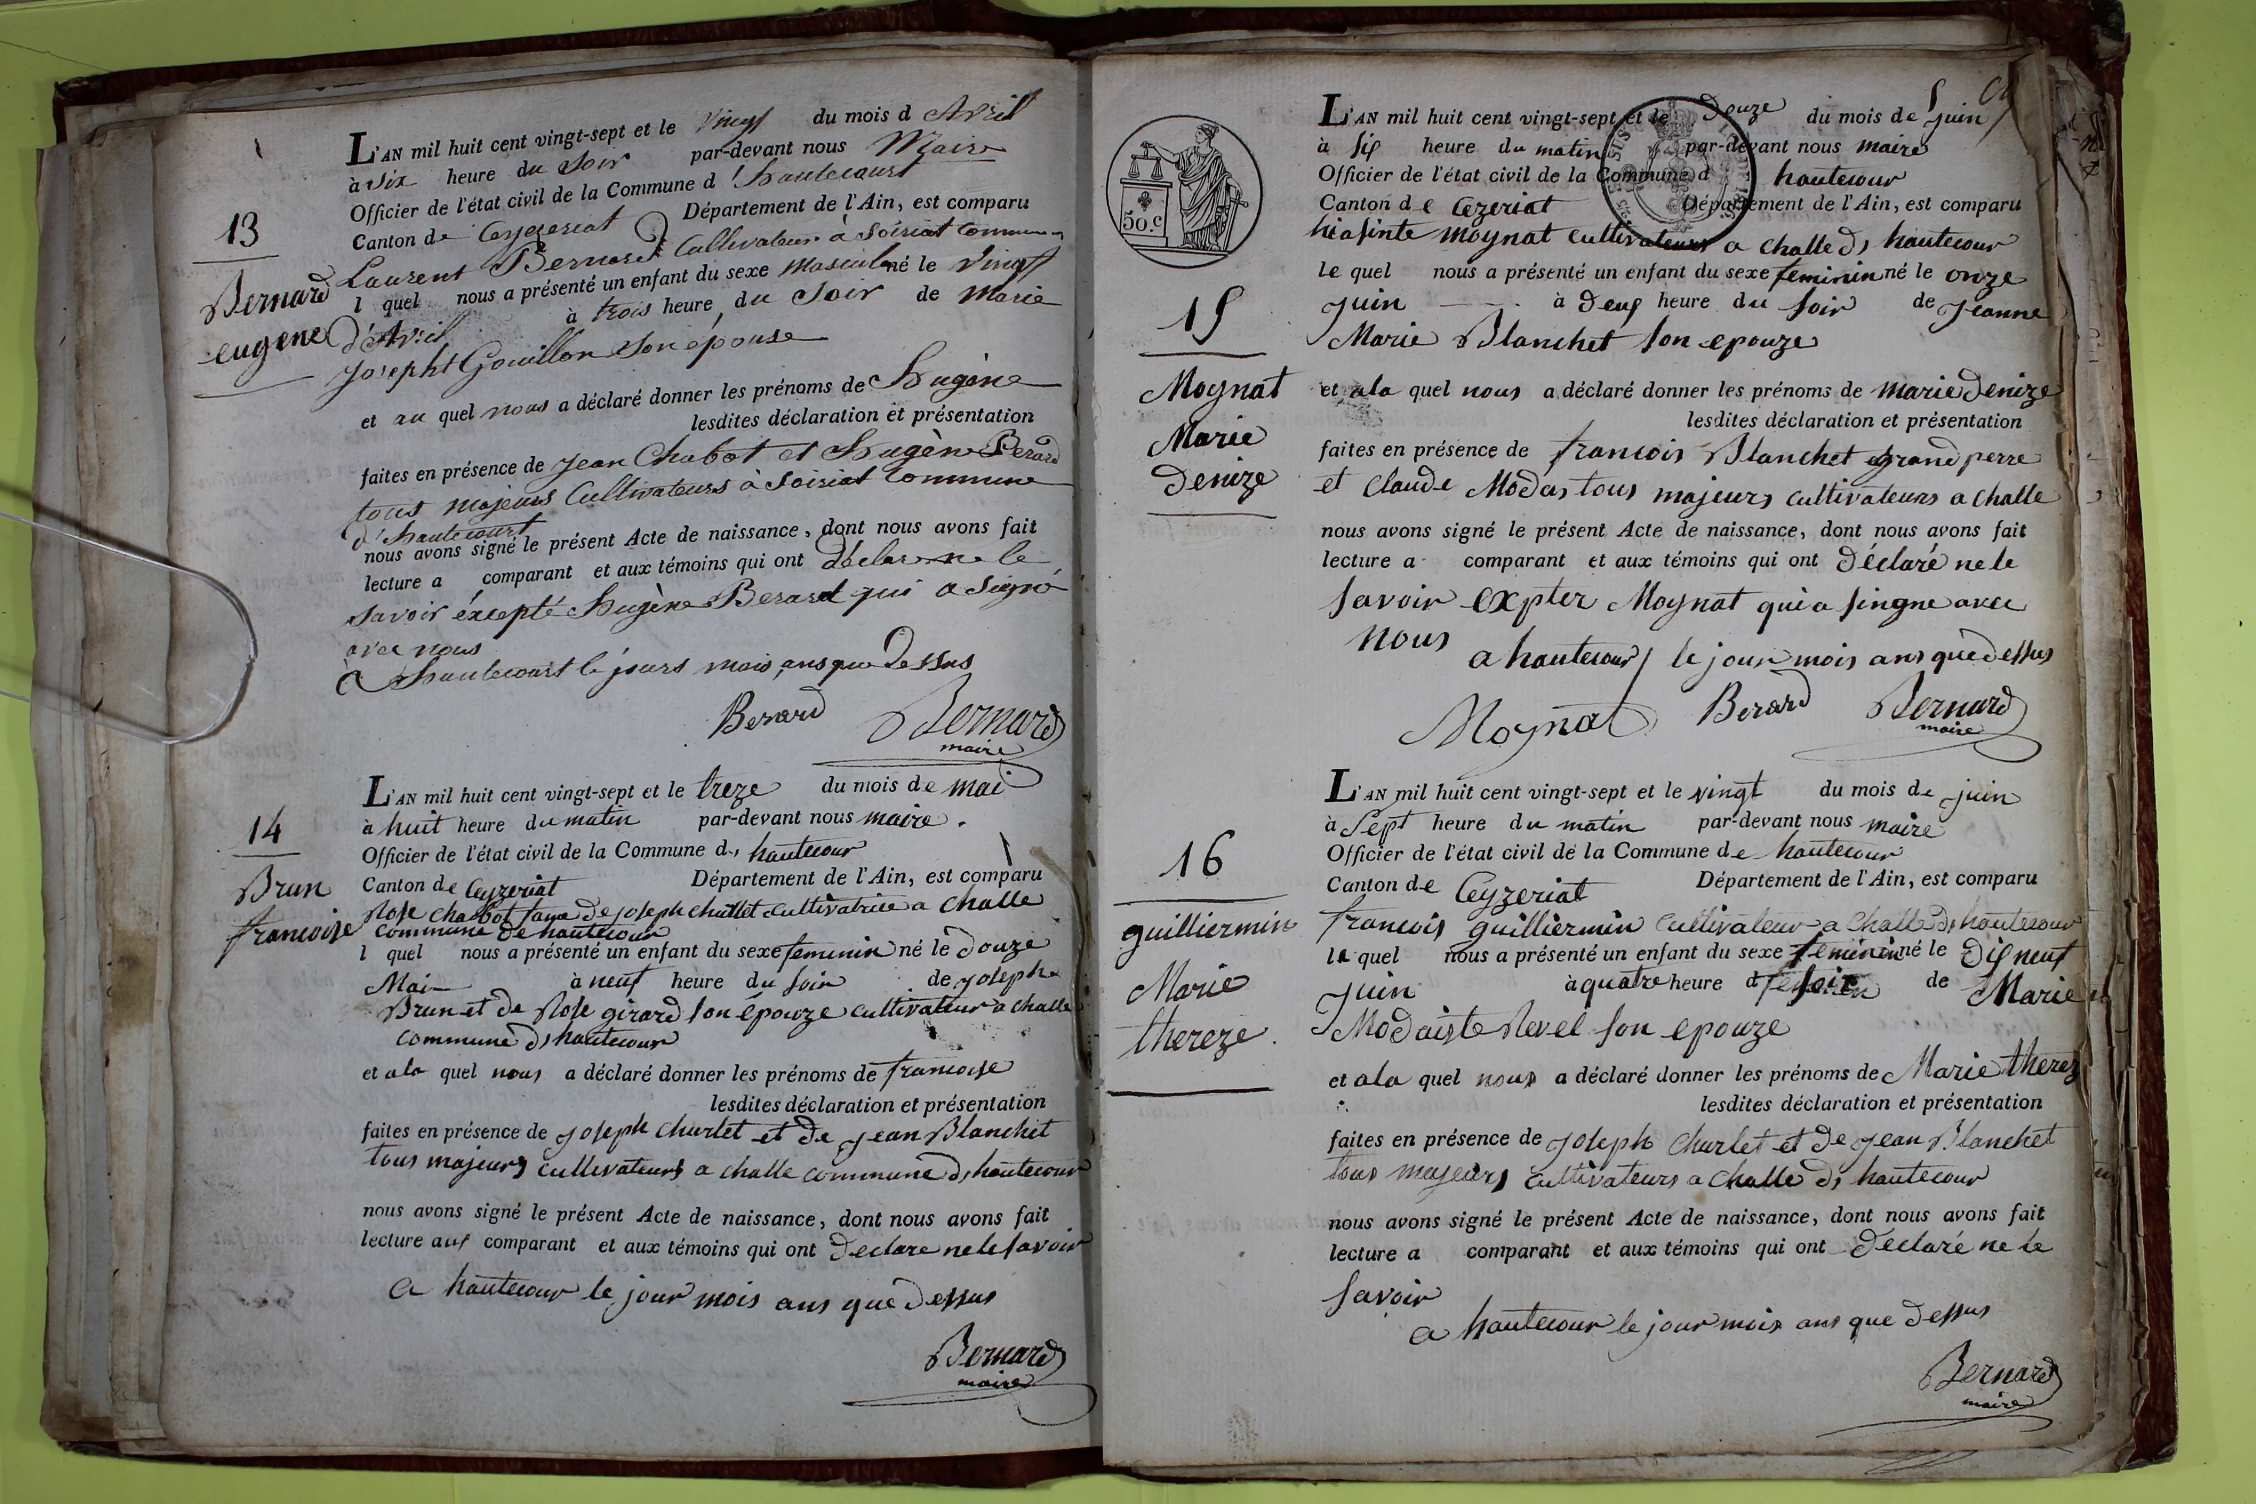 13
Bernard
eugene
L'AN mil huit cent vingt-sept et le vingt du mois d Avril
à Six heure du Soir par-devant nous Maire
Officier de l'état civil de la Commune d'hautecourt
Canton de Ceyzeriat Département de l'Ain, est comparu
Laurent Bernard Cultivateur à Soiriat Commune
l quel nous a présenté un enfant du sexe masculin né le Vingt
d'Avril à trois heure du Soir de Marie
Josepht Gouillon Son épouse
et au quel nous a déclaré donner les prénoms de hugène
lesdites déclaration et présentation
faites en présence de Jean Chabot et hugène Berard
tous majeurs Cultivateurs à Soiriat Commune
d'hautecourt
nous avons signé le présent Acte de naissance, dont nous avons fait
lecture a comparant et aux témoins qui ont déclare ne le
Savoir éxcepté hugène Berard qui a Signé
avec nous
à hautecourt le jours mois, ans que Dessus
Berard Bernard
maire
14
Brun
francoise
L'AN mil huit cent vingt-sept et le treze du mois de mai
à huit heure du matin par-devant nous maire.
Officier de l'état civil de la Commune d, hautecour
Canton de Ceyzeriat Département de l'Ain, est comparu
Rose Chabot fame de joseph churlet cultivatrice a challe
Commune de hautecour
l quel nous a présenté un enfant du sexe feminin né le douze
Mai à neuf heure du soir de joseph
Brun et de Rose girard son épouze cultivateur a challe
commune d, hautecour
et ala quel nous a déclaré donner les prénoms de francoise
lesdites déclaration et présentation
faites en présence de joseph churlet et de jean Blanchet
tous majeurs cultivateurs a challe commune d, hautecour
nous avons signé le présent Acte de naissance, dont nous avons fait
lecture aux comparant et aux témoins qui ont declare ne le savoir
a hautecour le jour mois ans que dessus
Bernard
maire
50 c
15
Moynat
Marie
denize
L'AN mil huit cent vingt-sept et le douze du mois de juin
à six heure du matin par-devant nous maire
Officier de l'état civil de la Commune d hautecour
Canton de Cezeriat Département de l'Ain, est comparu
hiasinte moynat cultivateur a challe d, hautecour
le quel nous a présenté un enfant du sexe feminin né le onze
juin à deux heure du soir de jeanne
Marie Blanchet son epouze
et ala quel nous a déclaré donner les prénoms de marie denize
lesdites déclaration et présentation
faites en présence de francois Blanchet grand perre
et claude Modas tous majeurs cultivateurs a challe
nous avons signé le présent Acte de naissance, dont nous avons fait
lecture a comparant et aux témoins qui ont déclaré ne le
savoir expter Moynat qui a singne avec
nous
a hautecour le jour mois ans que dessus
Moynat Berard Bernard
maire
16
guilliermin
Marie
thereze
L'AN mil huit cent vingt-sept et le vingt du mois de juin
à Sept heure du matin par-devant nous maire
Officier de l'état civil de la Commune de hautecour
Canton de Ceyzeriat Département de l'Ain, est comparu
francois guilliermin cultivateur a challe d, hautecour
le quel nous a présenté un enfant du sexe feminin né le dix neuf
juin à quatre heure d soir de Marie
Modaiste Revel son epouze
et ala quel nous a déclaré donner les prénoms de Marie therez
lesdites déclaration et présentation
faites en présence de joseph churlet et de jean Blanchet
tous majeurs cultivateurs a challe d, hautecour
nous avons signé le présent Acte de naissance, dont nous avons fait
lecture a comparant et aux témoins qui ont déclaré ne le
savoir
a hautecour le jour mois ans que dessus
Bernard
maire